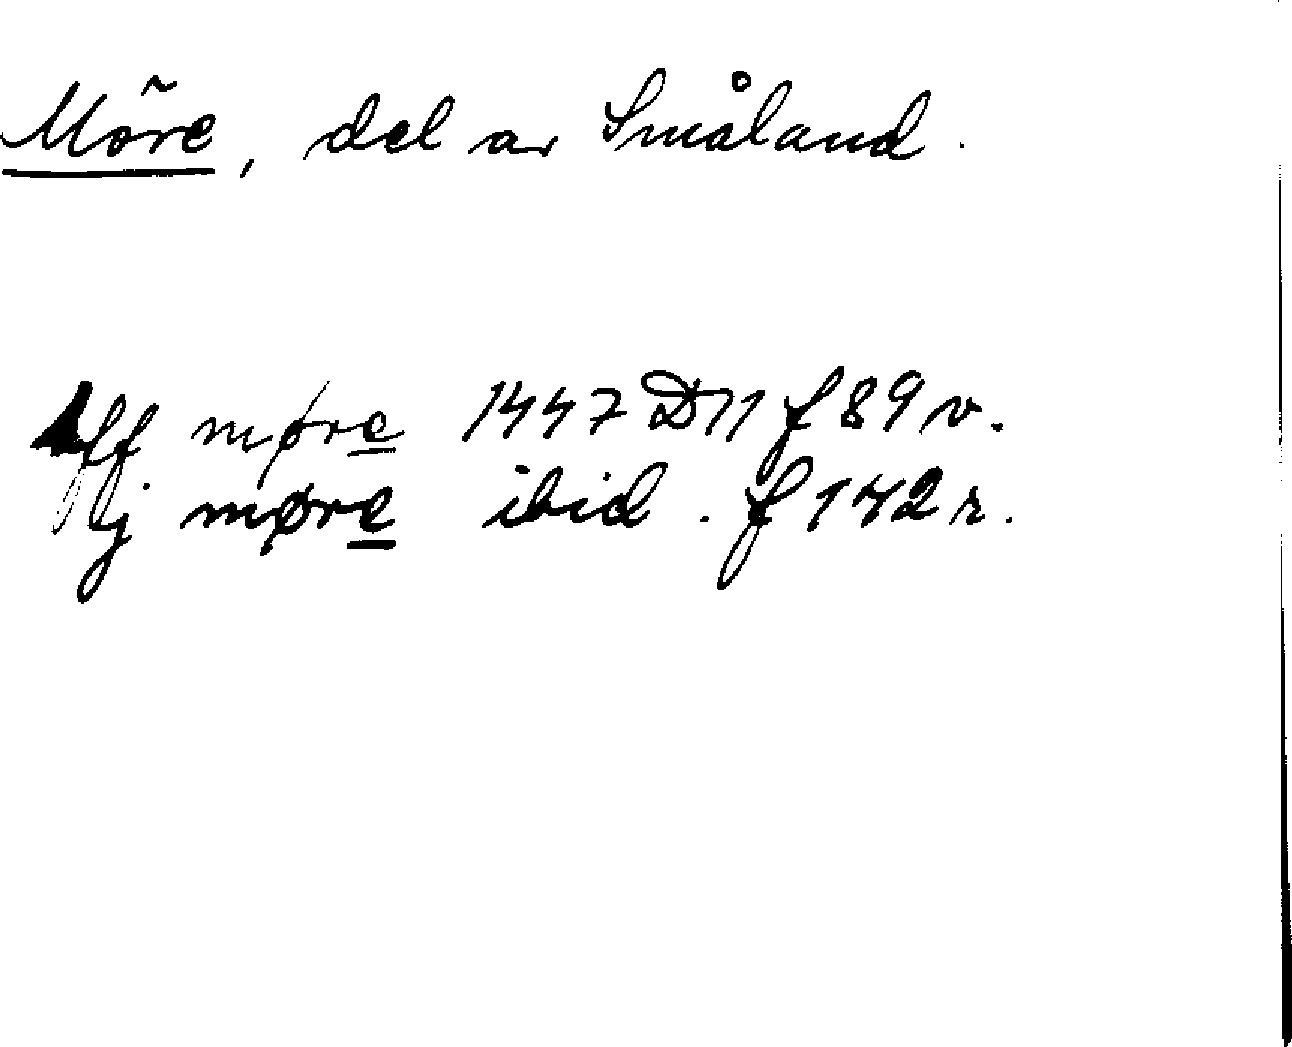 Möre, del av Småland.
Aff møre 1447 D11 f 89 v.
j møre ibid. f 142 r.